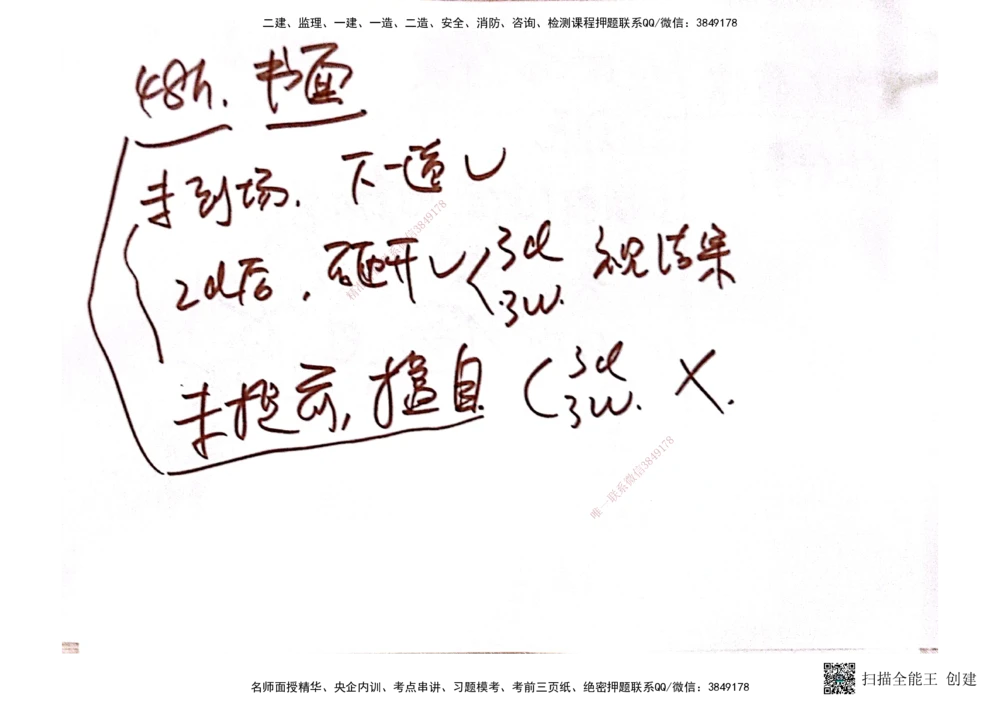 二建、监理、一建、一造、二造、安全、消防、咨询、检测课程押题联系QQ/微信：3849178
48h. 书面
未到场. 下一道 ✓
2d后, 砸开 ✓ 3d 视结果
3w.
未提示, 擅自 ( 3d ×.
3w.
唯一联系微信3849178
名师面授精华、央企内训、考点串讲、习题模考、考前三页纸、绝密押题联系QQ/微信：3849178
扫描全能王 创建